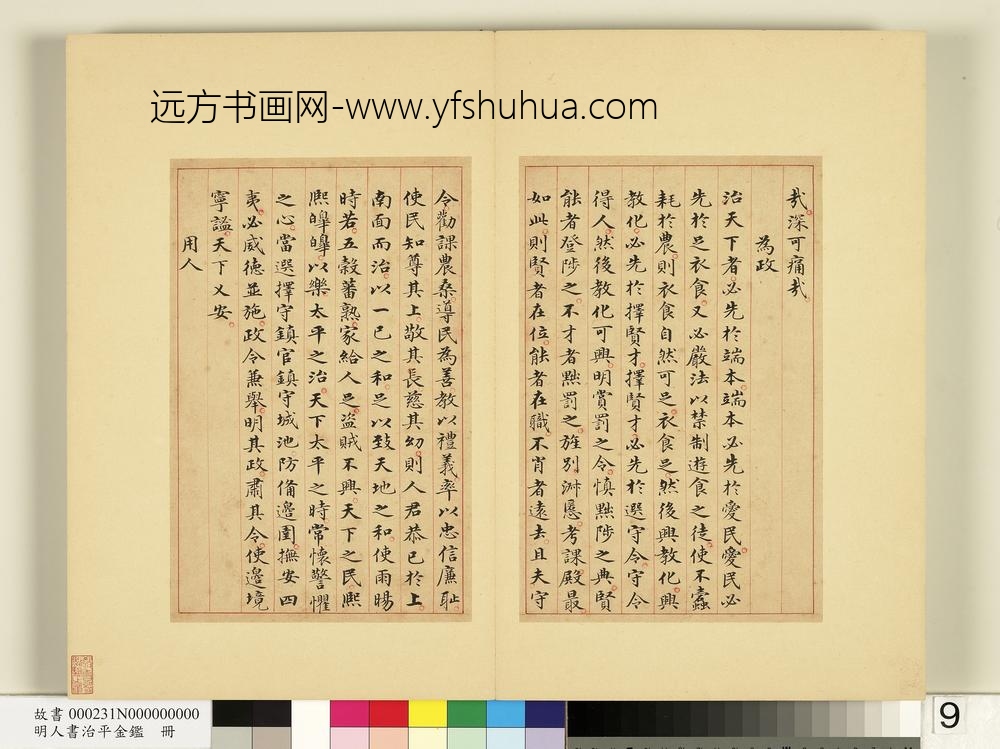 远方书画网-www.yfshuhua.com
哉深可痛哉
為政
治天下者必先於端本端本必先於愛民愛民必
先於足衣食又必嚴法以禁制遊食之徒使不蠹
耗於農則衣食自然可足衣食足然後興教化興
教化必先於擇賢才擇賢才必先於選守令守令
得人然後教化可興明賞罰之令慎黜陟之典賢
能者登陟之不才者黜罰之旌別淑慝考課殿最
如此則賢者在位能者在職不肖者遠去且夫守
令勸課農桑導民為善教以禮義率以忠信廉恥
使民知尊其上敬其長慈其幼則人君恭己於上
南面而治以一己之和足以致天地之和使雨暘
時若五穀蕃熟家給人足盜賊不興天下之民熙
熙皞皞以樂太平之治天下太平之時常懷警懼
之心當選擇守鎮官鎮守城池防備邊圉撫安四
夷必威德並施政令兼舉明其政肅其令使邊境
寧謐天下乂安
用人
故書 000231N000000000
明人書治平金鑑 冊
9